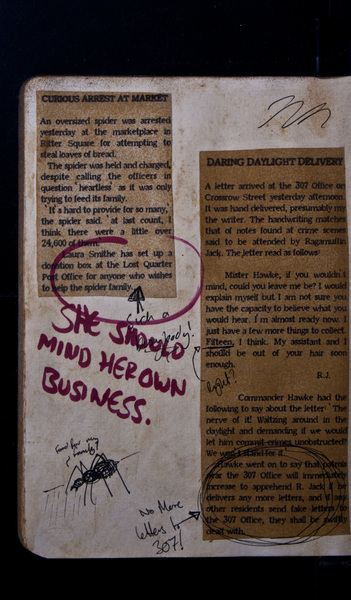 CURIOUS ARREST AT MARKET
An oversized spider was arrested
yesterday at the marketplace in
Ritter Square for attempting to
steal loaves of bread.
The spider was held and charged,
despite calling the officers in
question 'heartless' as it was only
trying to feed its family.
'It's hard to provide for so many,'
the spider said. 'at last count, I
think there were a little over
24,600 of them.'
Laura Smithe has set up a
donation box at the Lost Quarter
Post Office for anyone who wishes
to help the spider family.
such a
busybody!
SHE SHOULD
MIND HER OWN
BUSINESS.
food for my
family!
No More
letters to
307!
DARING DAYLIGHT DELIVERY
A letter arrived at the 307 Office on
Crossrow Street yesterday afternoon.
It was hand delivered, presumably by
the writer. The handwriting matches
that of notes found at crime scenes
said to be attended by Ragamuffin
Jack. The letter read as follows:
Mister Hawke, if you wouldn't
mind, could you leave me be? I would
explain myself but I am not sure you
have the capacity to believe what you
would hear. I'm almost ready now. I
just have a few more things to collect.
Fifteen, I think. My assistant and I
should be out of your hair soon
enough.
R.J.
Commander Hawke had the
following to say about the letter: 'The
nerve of it! Waltzing around in the
daylight and demanding if we would
let him commit crimes unobstructed?
We won't stand for it.'
Hawke went on to say that patrols
near the 307 Office will immediately
increase to apprehend R. Jack if he
delivers any more letters, and if any
other residents send fake letters to
the 307 Office, they shall be swiftly
dealt with.